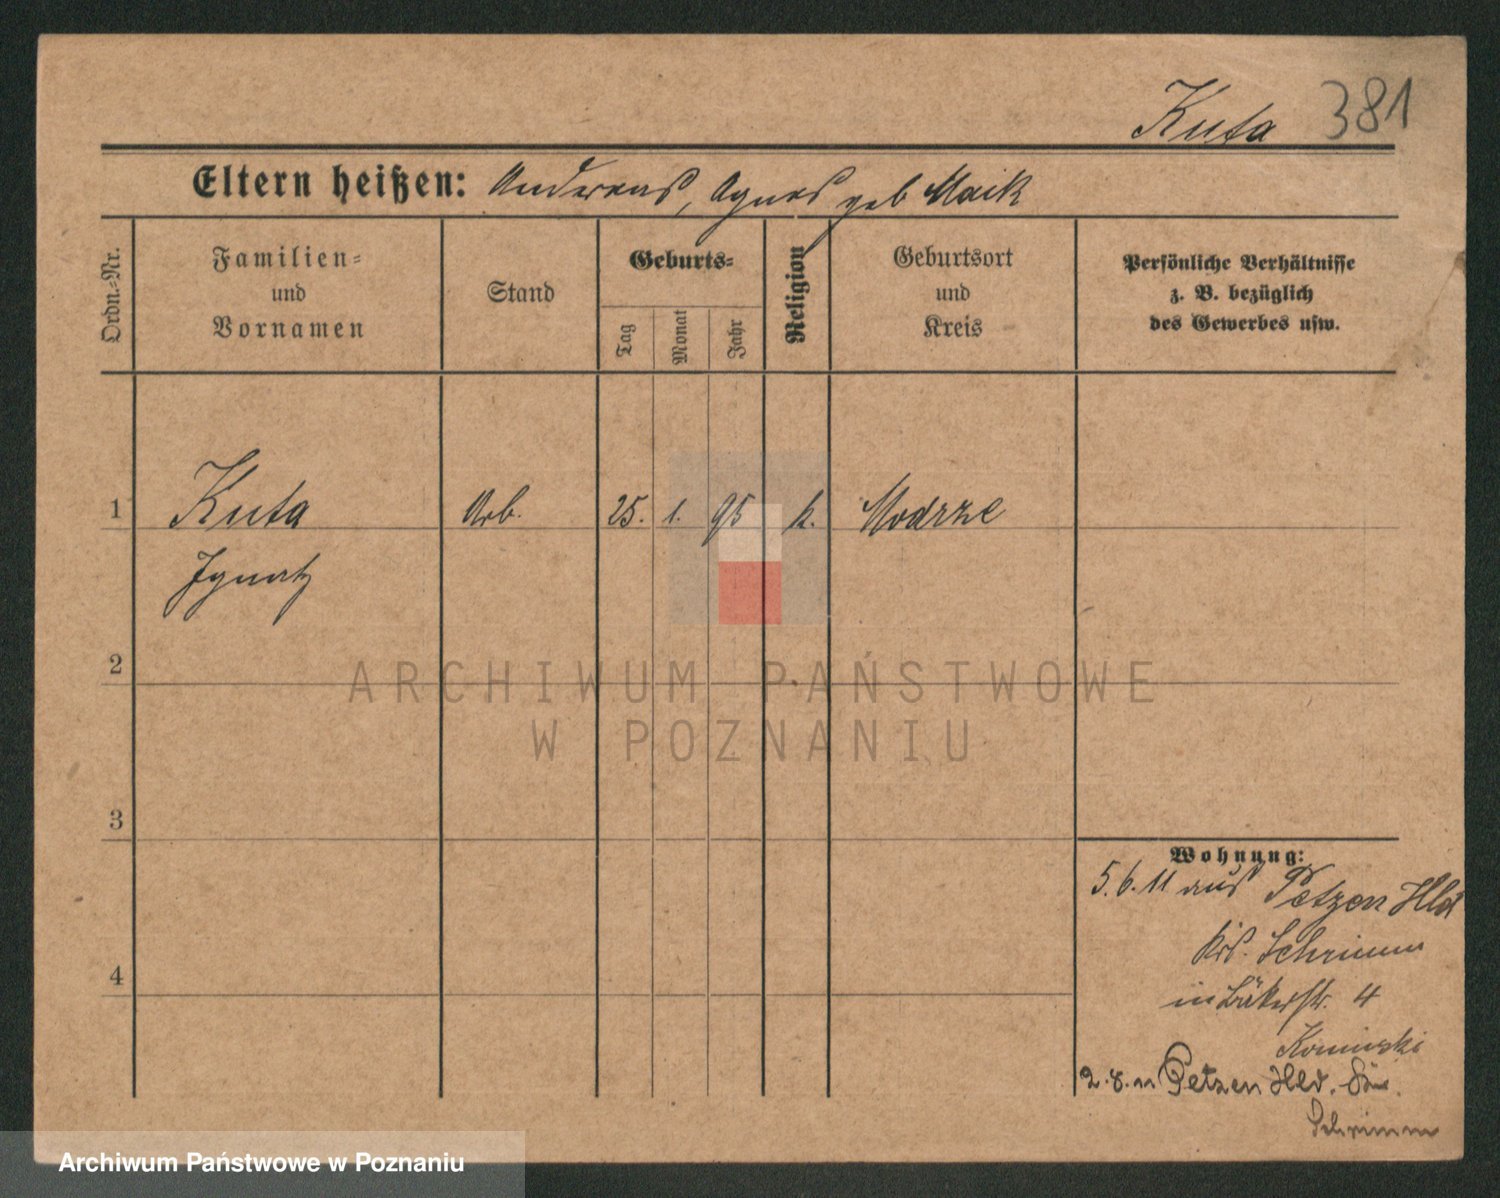 Kuta 381
Eltern heißen: Andreas, Agnes geb Maik
Ordn.-Nr.
Familien-
und
Vornamen
Stand
Geburts-
Tag
Monat
Jahr
Religion
Geburtsort
und
Kreis
Persönliche Verhältnisse
z. B. bezüglich
des Gewerbes usw.
1 Kuta Arb. 25. 1. 95 k. Modrze
Ignatz
2
3
4
Wohnung:
5.6.11 aus Petzen Hld
Krs. Schrimm
in Bäkerstr. 4
Kominski
2.8.11 Petzen Hld.
Schrimm
ARCHIWUM PAŃSTWOWE
W POZNANIU
Archiwum Państwowe w Poznaniu